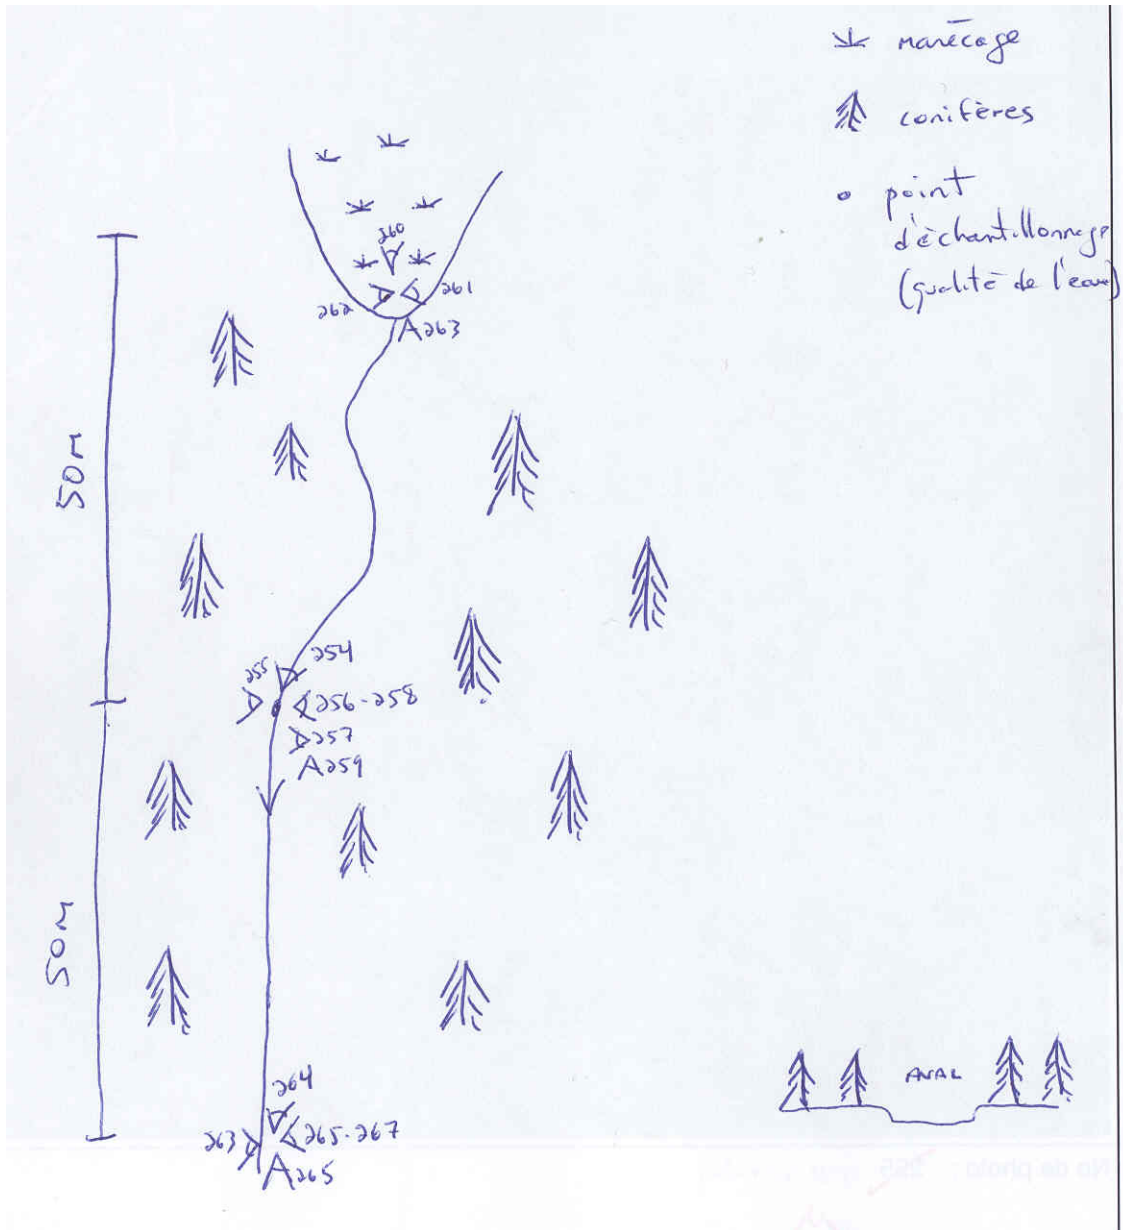 marécage
conifères
point
d'échantillonnage
(qualité de l'eau)
260
262
261
263
50m
254
255
256-258
257
259
50m
264
263
265-267
265
AVAL
No de photo 255